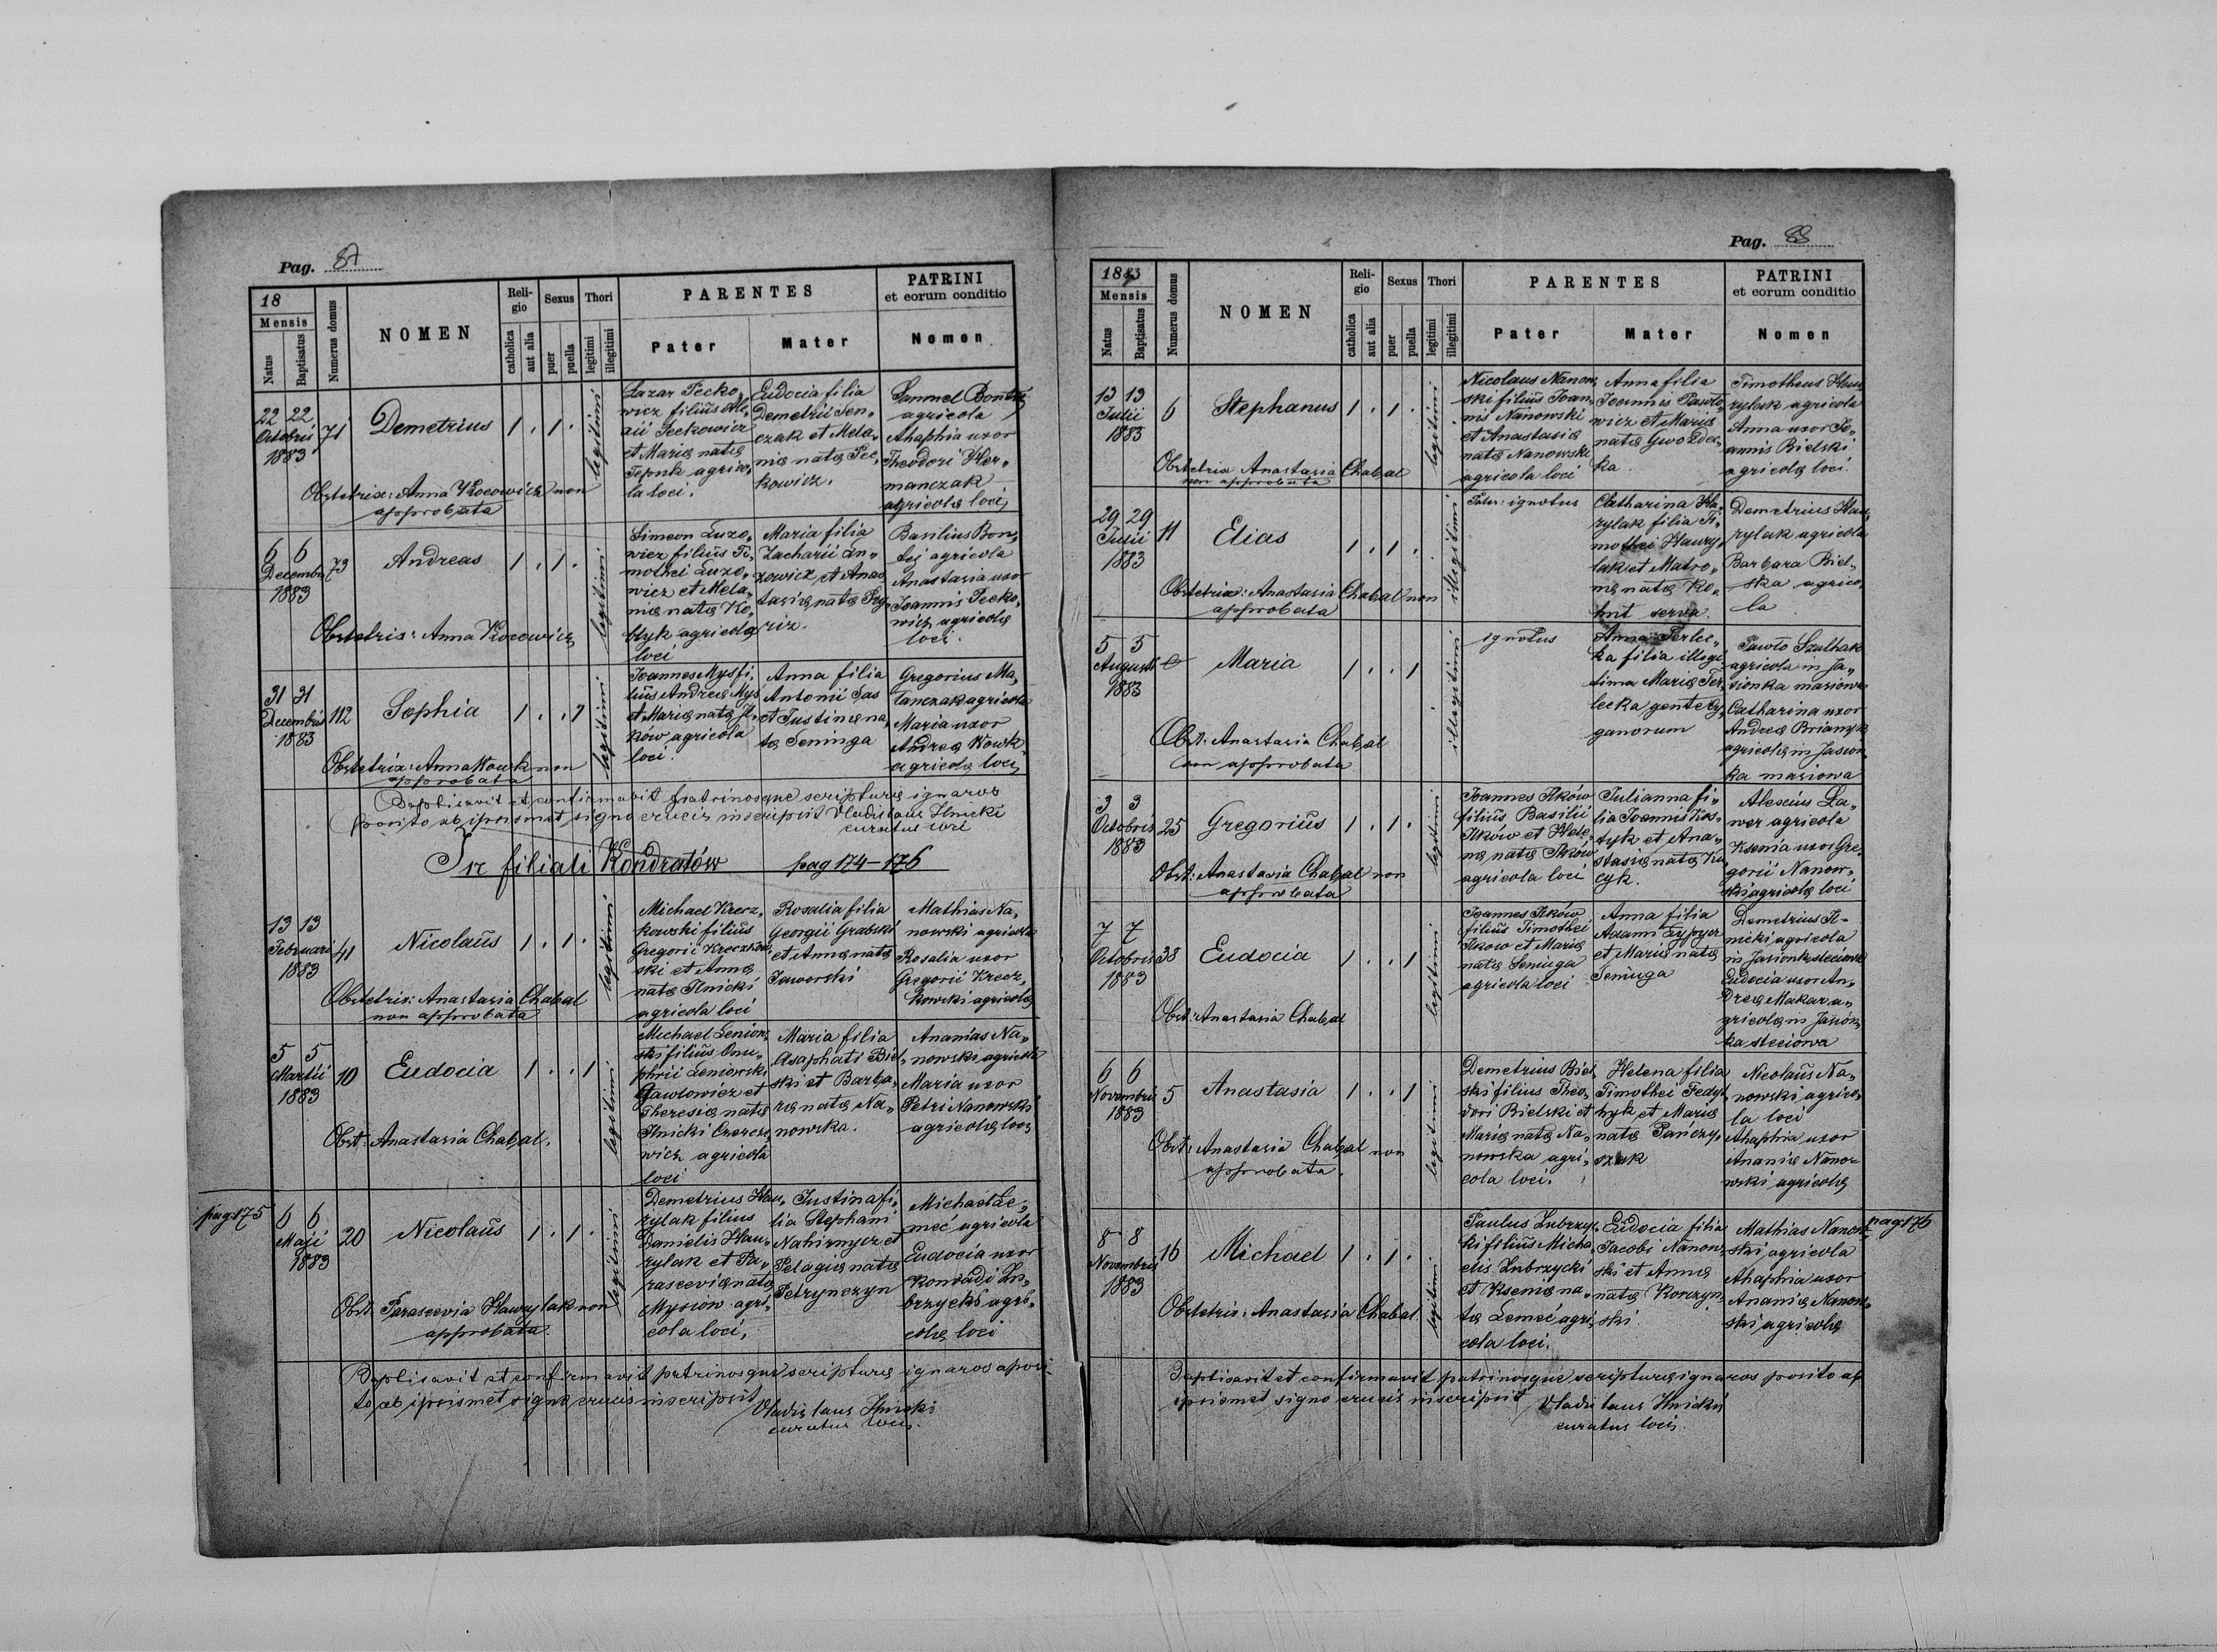 Pag. 87
18
Mensis
Natus
Baptisatus
Numerus domus
NOMEN
Reli-
gio
catholica
aut alia
Sexus
puer
puella
Thori
legitimi
illegitimi
PARENTES
Pater
Mater
PATRINI
et eorum conditio
Nomen
22 22
Octobris
1883
71
Demetrius
1 . 1 .
legitimi
Lazar Pecko„
wicz filius Ale„
xii Peckowicz
et Mariæ natæ
agrico„
la loci.
Eudocia filia
Demetrii Sen„
czak et Mela„
niæ natæ Pec„
kowicz.
Samuel
agricola
Ahaphia uxor
Theodori Her„
manczak
agricolæ loci
Obstetrix: Anna Kocowicz non
approbata
6 6
Decembris
1883
73
Andreas
1 . 1 .
legitimi
Simeon Luzo„
wicz filius Ti„
mothei Luzo„
wicz et Mela„
niæ natæ Ko„
blyk agricola
loci
Maria filia
Zacharii Lu„
zowicz et Anas„
tasiæ natæ
Basilius Bon„
dz agricola
Anastasia uxor
Joannis Pecko„
wicz agricolæ
loci.
Obstetrix: Anna Kocowicz
31 31
Decembris
1883
112
Sophia
1 . . 1
legitimi
Joannes Mys fi„
lius Andreæ Mys
et Mariæ natæ Il„
kow agricola
loci.
Anna filia
Antonii Sas
et Justinæ na„
ta Seninga
Gregorius Ma„
lanczak agricola
Maria uxor
Andreæ Wowk
agricolæ loci
Obstetrix: Anna Wowk non
approbata
Baptisavit et confirmavit patrinosque scripturæ ignaros
posito ab ipsismet signo crucis inscripsit Vladislaus Ilnicki
curatus loci
In filiali Kondratów pag 174–176
13 13
Februarii
1883
41
Nicolaus
1 . 1 .
legitimi
Michael Krecz„
kowski filius
Gregorii Kreczkow„
ski et Annæ
natæ Ilnicki
agricola loci
Rosalia filia
Georgii Grabski
et Annæ natæ
Jaworski
Mathias Na„
nowski agricola
Rosalia uxor
Gregorii Krecz„
kowski agricolæ
Obstetrix: Anastasia Chabal
non approbata
5 5
Martii
1883
10
Eudocia
1 . . 1
legitimi
Michael Leniow„
ski filius Onu„
phrii Leniowski
Gawlowicz et
Theresiæ natæ
Ilnicki
wicz agricola
loci
Maria filia
Asaphati Biel„
ski et Barba„
ræ natæ Na„
nowska.
Ananias Na„
nowski agricola
Maria uxor
Petri Nanowski
agricolæ loci
Obst: Anastasia Chabal.
pag 175
6 6
Maji
1883
20
Nicolaus
1 . 1 .
legitimi
Demetrius Haw„
rylak filius
Danielis Haw„
rylak et Pa„
rasceviæ natæ
Mysiow agri„
cola loci,
Justina fi„
lia Stephani
Nahirnycz et
Pelagiæ natæ
Petrynczyn
Michael Le„
meć agricola
Eudocia uxor
Konradi Zu„
brzycki agri„
colæ loci
Obst. Parascevia Hawrylak non
approbata.
Baptisavit et confirmavit patrinosque scripturæ ignaros aposi„
to ab ipsismet signo crucis inscripsit
Vladislaus Ilnicki
curatus loci.
Pag. 88
1883
Mensis
Natus
Baptisatus
Numerus domus
NOMEN
Reli-
gio
catholica
aut alia
Sexus
puer
puella
Thori
legitimi
illegitimi
PARENTES
Pater
Mater
PATRINI
et eorum conditio
Nomen
13 13
Julii
1883
6
Stephanus
1 . 1 .
legitimi
Nicolaus Nanow„
ski filius Joan„
nis Nanowski
et Anastasiæ
natæ Nanowski
agricola loci
Anna filia
Joannis Pawlo„
wicz et Mariæ
natæ Gwozdec„
ka.
Timotheus Haw„
rylak agricola
Anna uxor Jo„
annis Bielski
agricolæ loci.
Obstetrix Anastasia Chabal
non approbata
29 29
Julii
1883
11
Elias
1 . 1 .
illegitimi
Pater: ignotus
Catharina Ha„
rylak filia Ti„
mothei Hawry„
lak et Matro„
næ natæ Ko„
hut serva.
Demetrius Haw„
rylak agricola
Barbara Biel„
ska agrico„
la.
Obstetrix: Anastasia Chabal non
approbata
5 5
Augusti
1883
Maria
1 . . 1
illegitimi
ignotus
Anna Terlec„
ka filia illegi„
tima Mariæ Ter„
lecka gente Cy„
ganorum
Pawlo Szulhak
agricola in Ja„
sionka masiowa
Catharina uxor
Andreæ
agricolæ in Jasion„
ka masiowa
Obst: Anastasia Chabal
non approbata
3 3
Octobris
1883
25
Gregorius
1 . 1 .
legitimi
Joannes Ilków
filius Basilii
Ilków et Hele„
næ natæ Ilków
agricola loci
Julianna fi„
lia Joannis Kos„
tyk et Ana„
stasiæ natæ Ku„
cyk.
Alexius La„
wer agricola
Ksenia uxor Gre„
gorii Nanow„
ski agricolæ loci
Obst: Anastasia Chabal non
approbata
7 7
Octobris
1883
38
Eudocia
1 . . 1
legitimi
Joannes Ilków
filius Timothei
Ilkow et Mariæ
natæ Seninga
agricola loci
Anna filia
Adami Cypycz
et Mariæ natæ
Seninga
Demetrius Il„
nicki agricola
in Jasionka steciowa
Eudocia uxor An„
dreæ Makar a„
gricolæ in Jasion„
ka steciowa
Obst: Anastasia Chabal
6 6
Novembris
1883
5
Anastasia
1 . . 1
legitimi
Demetrius Biel„
ski filius Theo„
dori Bielski et
Mariæ natæ Na„
nowska agri„
cola loci.
Helena filia
Timothei Fedy„
hyk et Mariæ
natæ Pańczy„
szak
Nicolaus Na„
nowski agrico„
la loci
Ahaphia uxor
Ananiæ Nano„
wski agricolæ
Obst: Anastasia Chabal non
approbata.
pag 176
8 8
Novembris
1883
16
Michael
1 . 1 .
legitimi
Paulus Zubrzyc„
ki filius Micha„
elis Zubrzycki
et Kseniæ na„
tæ Lemeć agri„
cola loci.
Eudocia filia
Jacobi Nanow„
ski et Annæ
natæ Korczyn„
ski.
Mathias Nanow„
ski agricola
Ahaphia uxor
Ananiæ Nanow„
ski agricolæ
Obstetrix: Anastasia Chabal.
Baptisavit et confirmavit patrinosque scripturæ ignaros posito ab
ipsismet signo crucis inscripsit
Vladislaus Ilnicki
curatus loci.